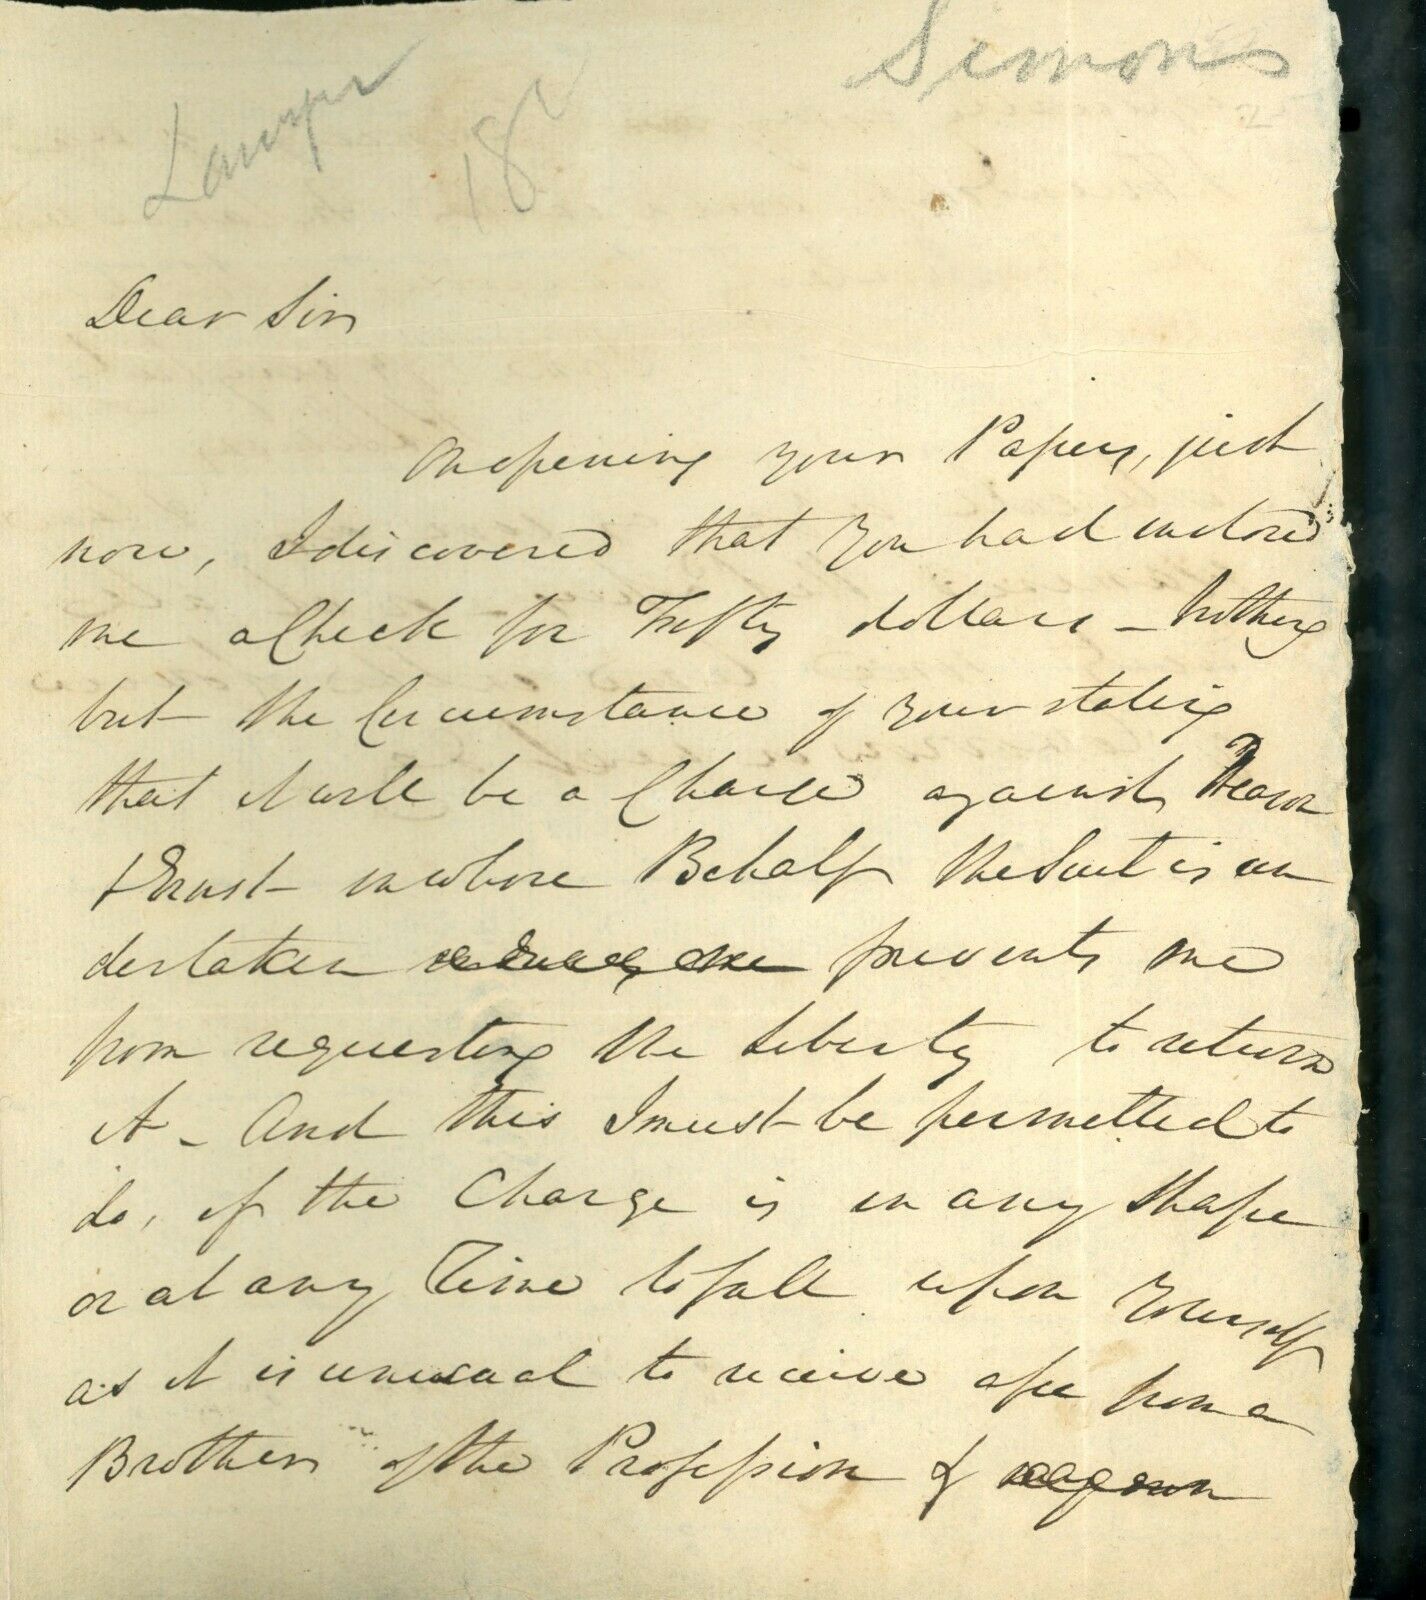 Simons
Lawyer
18
Dear Sir
On opening your Papers, just
now, I discovered that you had inclosed
me a Check for Fifty dollars – Nothing
but the Circumstance of your stating
that it will be a Charge against
& Ernst in whose Behalf the Suit is un
dertaken prevents me
from requesting the Liberty to return
it – And this I must be permitted to
do, if the Charge is in any Shape
or at any Time to fall upon yourself
as it is unusual to receive a fee from a
Brother of the Profession &